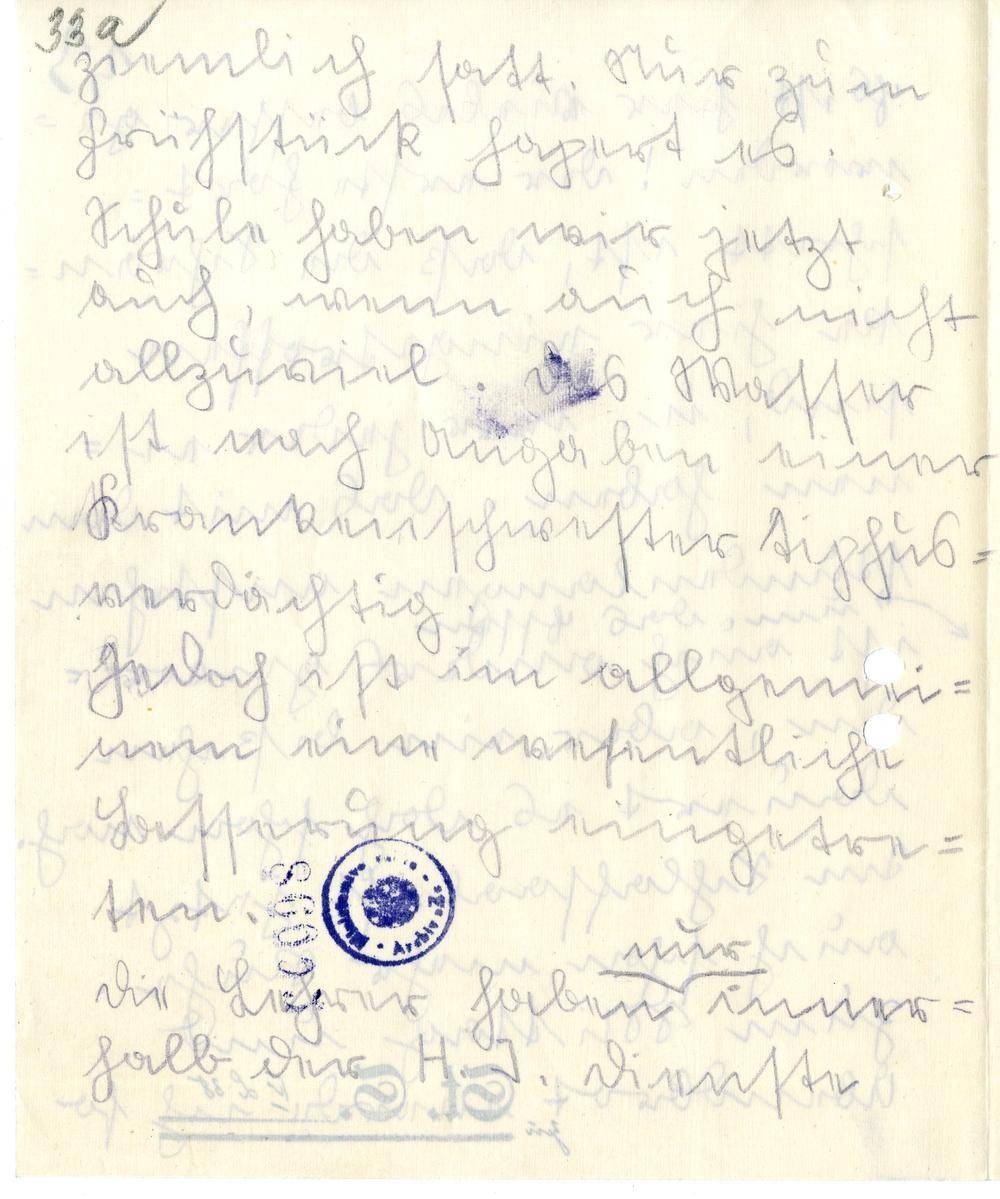 33a
ziemlich satt. Nur zum
Frühstück hapert es.
Schule haben wir jetzt
auch, wenn auch nicht
allzuviel. Das Wasser
ist nach Angaben einer
Krankenschwester tiphus=
verdächtig.
Jedoch ist im allgemei=
nen eine wesentliche
Besserung eingetre=
ten.
nur
Die Lehrer haben inner=
halb der H.J. Dienste